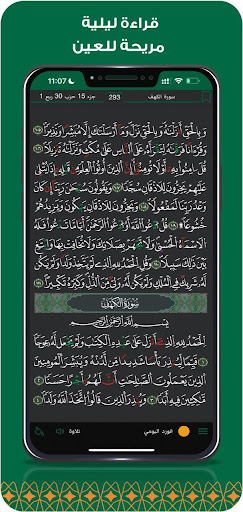 قراءة ليلية
مريحة للعين
11:07
سورة الكهف 293 جزء 15 حزب 30 ربع 1
وَبِٱلْحَقِّ أَنزَلْنَٰهُ وَبِٱلْحَقِّ نَزَلَ وَمَآ أَرْسَلْنَٰكَ إِلَّا مُبَشِّرًا وَنَذِيرًا ١٠٥
وَقُرْءَانًا فَرَقْنَٰهُ لِتَقْرَأَهُۥ عَلَى ٱلنَّاسِ عَلَىٰ مُكْثٍ وَنَزَّلْنَٰهُ تَنزِيلًا ١٠٦
قُلْ ءَامِنُوا۟ بِهِۦٓ أَوْ لَا تُؤْمِنُوٓا۟ إِنَّ ٱلَّذِينَ أُوتُوا۟ ٱلْعِلْمَ مِن قَبْلِهِۦٓ إِذَا يُتْلَىٰ
عَلَيْهِمْ يَخِرُّونَ لِلْأَذْقَانِ سُجَّدًا ١٠٧ وَيَقُولُونَ سُبْحَٰنَ رَبِّنَآ إِن كَانَ
وَعْدُ رَبِّنَا لَمَفْعُولًا ١٠٨ وَيَخِرُّونَ لِلْأَذْقَانِ يَبْكُونَ وَيَزِيدُهُمْ
خُشُوعًا ١٠٩ قُلِ ٱدْعُوا۟ ٱللَّهَ أَوِ ٱدْعُوا۟ ٱلرَّحْمَٰنَ أَيًّا مَّا تَدْعُوا۟ فَلَهُ
ٱلْأَسْمَآءُ ٱلْحُسْنَىٰ وَلَا تَجْهَرْ بِصَلَاتِكَ وَلَا تُخَافِتْ بِهَا وَٱبْتَغِ
بَيْنَ ذَٰلِكَ سَبِيلًا ١١٠ وَقُلِ ٱلْحَمْدُ لِلَّهِ ٱلَّذِى لَمْ يَتَّخِذْ وَلَدًا وَلَمْ يَكُن
لَّهُۥ شَرِيكٌ فِى ٱلْمُلْكِ وَلَمْ يَكُن لَّهُۥ وَلِىٌّ مِّنَ ٱلذُّلِّ وَكَبِّرْهُ تَكْبِيرًۢا ١١١
سُورَةُ الكَهْفِ
بِسْمِ ٱللَّهِ ٱلرَّحْمَٰنِ ٱلرَّحِيمِ
ٱلْحَمْدُ لِلَّهِ ٱلَّذِىٓ أَنزَلَ عَلَىٰ عَبْدِهِ ٱلْكِتَٰبَ وَلَمْ يَجْعَل لَّهُۥ عِوَجَا ١
قَيِّمًا لِّيُنذِرَ بَأْسًا شَدِيدًا مِّن لَّدُنْهُ وَيُبَشِّرَ ٱلْمُؤْمِنِينَ
ٱلَّذِينَ يَعْمَلُونَ ٱلصَّٰلِحَٰتِ أَنَّ لَهُمْ أَجْرًا حَسَنًا ٢
مَّٰكِثِينَ فِيهِ أَبَدًا ٣ وَيُنذِرَ ٱلَّذِينَ قَالُوا۟ ٱتَّخَذَ ٱللَّهُ وَلَدًا ٤
الورد اليومي تلاوة